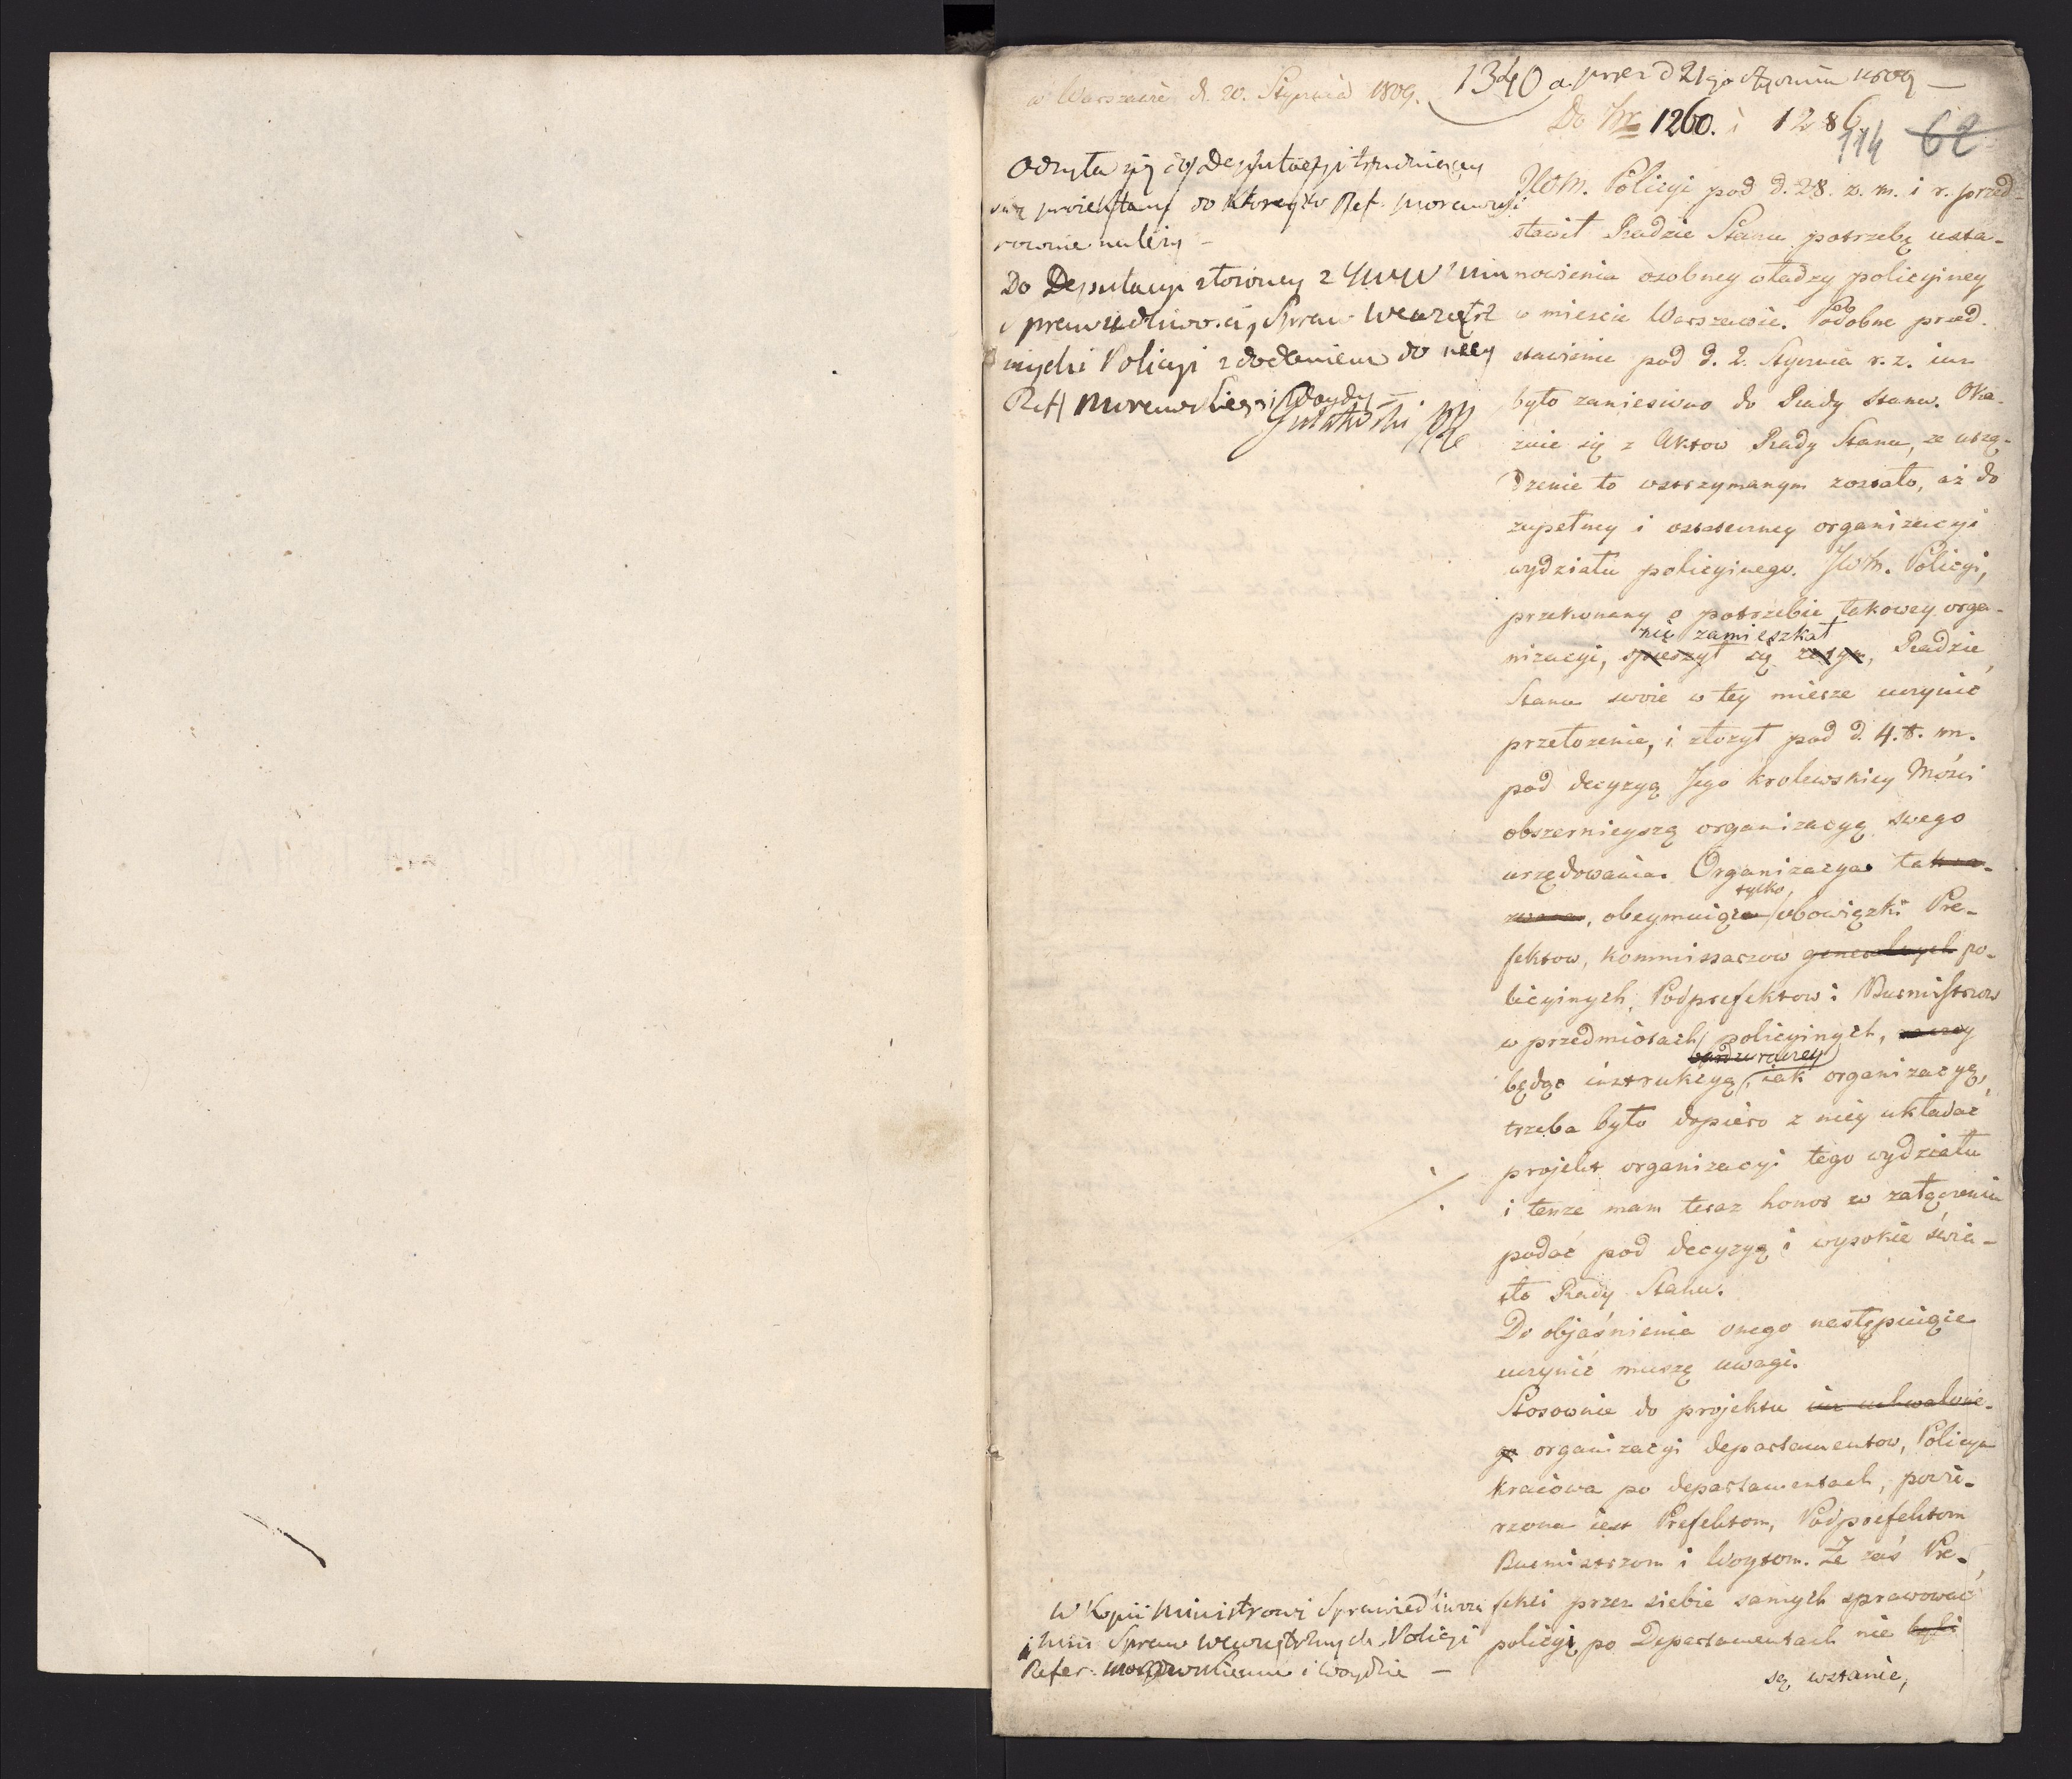 w Warszawie d. 20. Stycznia 1809.
1340 a. prez d 21go Stycznia 1809 —
Do Nr 1260. i 1286
114 62
Odsyła się do Deputacyi trudniącey
się proiektami do ktorey to Ref. Morawski
rownie należy —
Do Deputacyi złożoney z JWW Min
Sprawiedliwości, Spraw Wewnętrz
nych i Policyi z dodaniem do niey
Reff Morawskiego i Woydy —
Gutakowski PR
JWM. Policyi pod d. 28. z. m. i r. przed-
stawił Radzie Stanu potrzebę usta-
nowienia osobney władzy policyiney
w mieście Warszawie. Podobne przed-
stawienie pod d. 2. Stycznia r. z. iuz
było zaniesiono do Rady Stanu. Oka-
zuie się z Aktow Rady Stanu, ze urzą-
dzenie to wstrzymanym zostało, aż do
zupełney i ostateczney organizacyi
wydziału policyinego. JWM. Policyi,
przekonany o potrzebie takowey orga-
nie zamieszkał
nizacyi, spieszył się z tym, Radzie
Stanu swoie w tey mierze uczynić
przełożenie, i złożył pod d. 4. t. m.
pod decyzyą Jego Krolewskiey Mości
obszernieyszą organizacyą swego
urzędowania. Organizacya takna-
tylko
zwana, obeymuiąca obowiązki Pre-
fektow, kommissarzow generalnych po-
licyinych, Podprefektow i Burmistrzow
w przedmiotach policyinych, raczey
bardziey raczey
będąc instrukcyą, iak organizacyą,
trzeba było dopiero z niey układać
projekt organizacyi tego wydziału
i tenze mam teraz honor w załączeniu
podać pod decyzyą i wysokie świa-
tło Rady Stanu.
Do objaśnienia onego następuiące
uczynić muszę uwagi.
Stosownie do projektu iuz uchwalone-
go organizacyi departamentow, Policya
kraiowa po departamentach, powie-
rzona iest Prefektom, Podprefektom
Burmistrzom i Woytom. Że zaś Pre-
fekci przez siebie samych sprawować
policyią po Departamentach nie byli
są wstanie,
W Kopii Ministrowi Sprawiedliwości
i Min Spraw Wewnętrznych, Policyi
Refer: Morawskiemu i Woydzie —